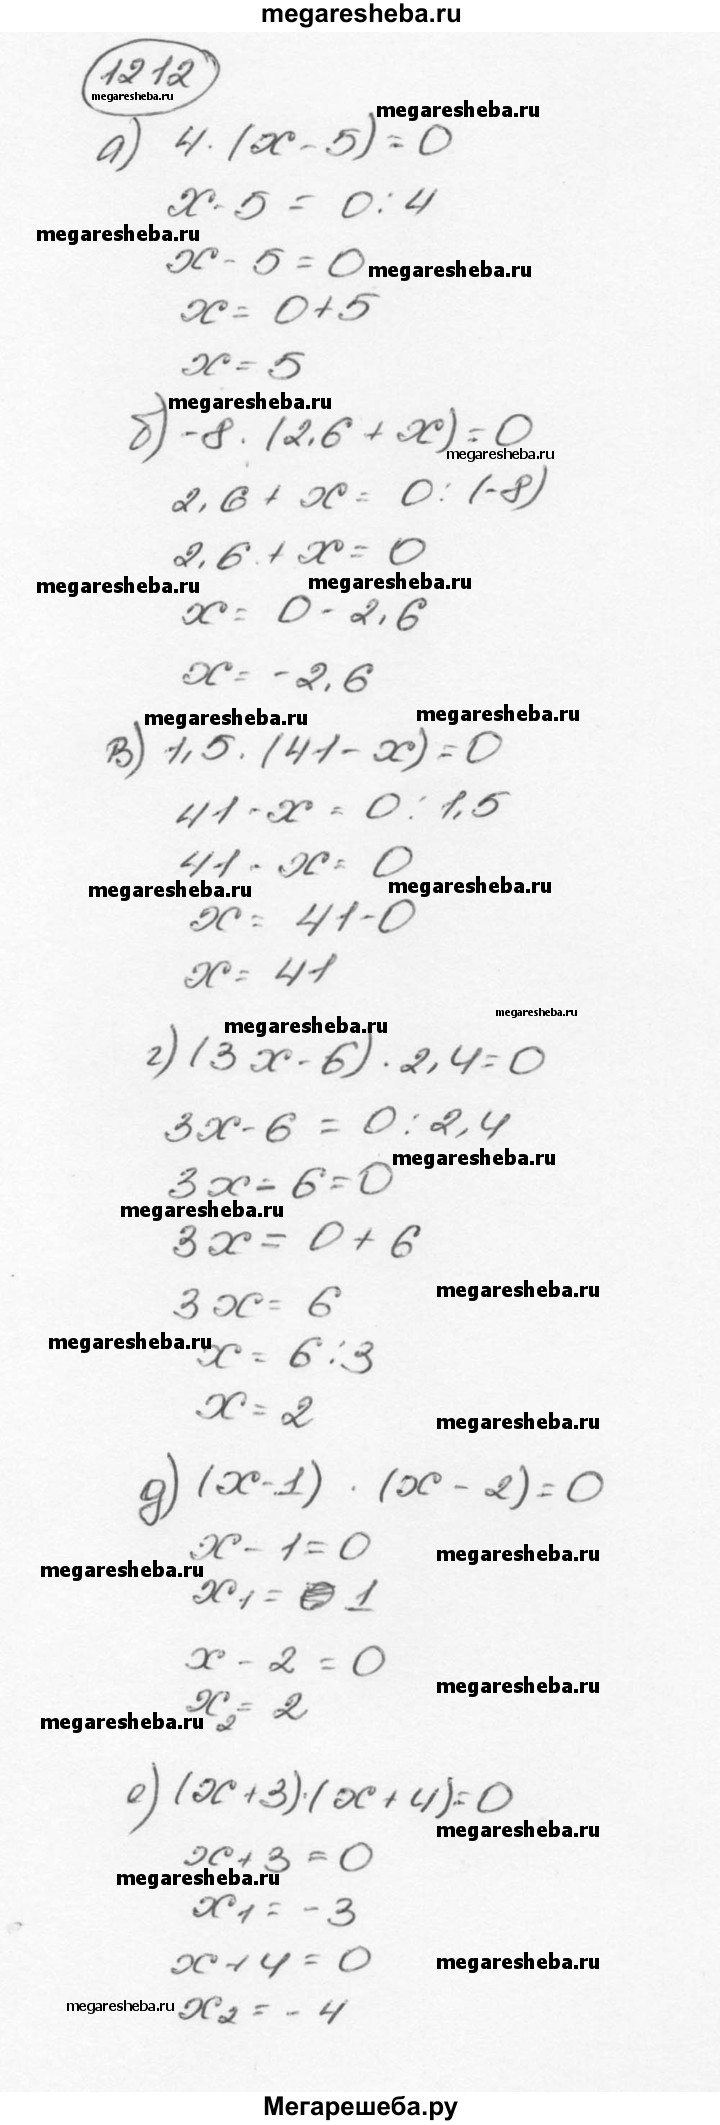 megaresheba.ru
1212
megaresheba.ru
megaresheba.ru
а) 4·(x-5)=0
x-5 = 0:4
megaresheba.ru
x-5=0
megaresheba.ru
x= 0+5
x= 5
megaresheba.ru
б) -8·(2,6+x)=0
megaresheba.ru
2,6+x= 0:(-8)
2,6+x=0
megaresheba.ru
megaresheba.ru
x= 0-2,6
x= -2,6
megaresheba.ru
megaresheba.ru
в) 1,5·(41-x)=0
41-x = 0:1,5
41-x= 0
megaresheba.ru
megaresheba.ru
x= 41-0
x= 41
megaresheba.ru
megaresheba.ru
г) (3x-6)·2,4=0
3x-6 = 0:2,4
megaresheba.ru
3x-6=0
megaresheba.ru
3x= 0+6
megaresheba.ru
3x= 6
megaresheba.ru
x= 6:3
x= 2
megaresheba.ru
д) (x-1)·(x-2)=0
x-1=0
megaresheba.ru
megaresheba.ru
x₁= 1
x-2=0
megaresheba.ru
x₂= 2
megaresheba.ru
е) (x+3)·(x+4)=0
megaresheba.ru
x+3=0
megaresheba.ru
x₁= -3
x+4=0
megaresheba.ru
megaresheba.ru
x₂= -4
Мегарешеба.ру